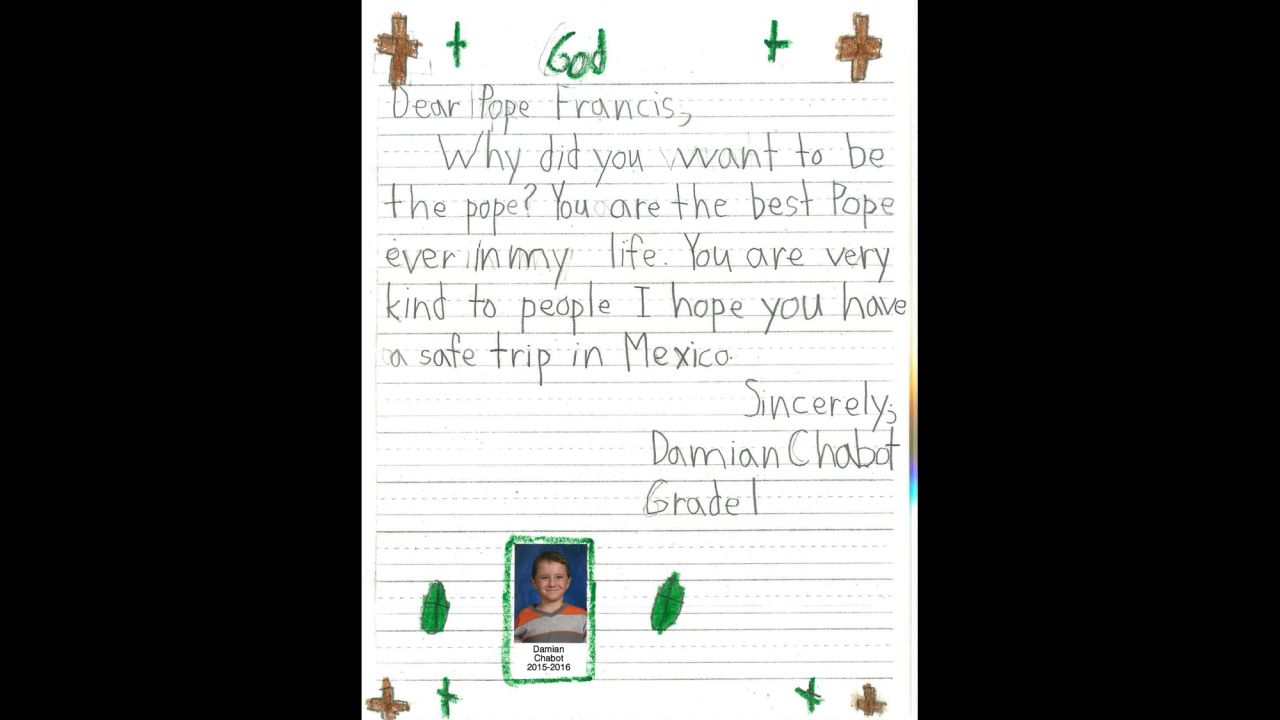 God
Dear Pope Francis,
Why did you want to be
the pope? You are the best Pope
ever in my life. You are very
kind to people I hope you have
a safe trip in Mexico.
Sincerely,
Damian Chabot
Grade 1
Damian
Chabot
2015-2016